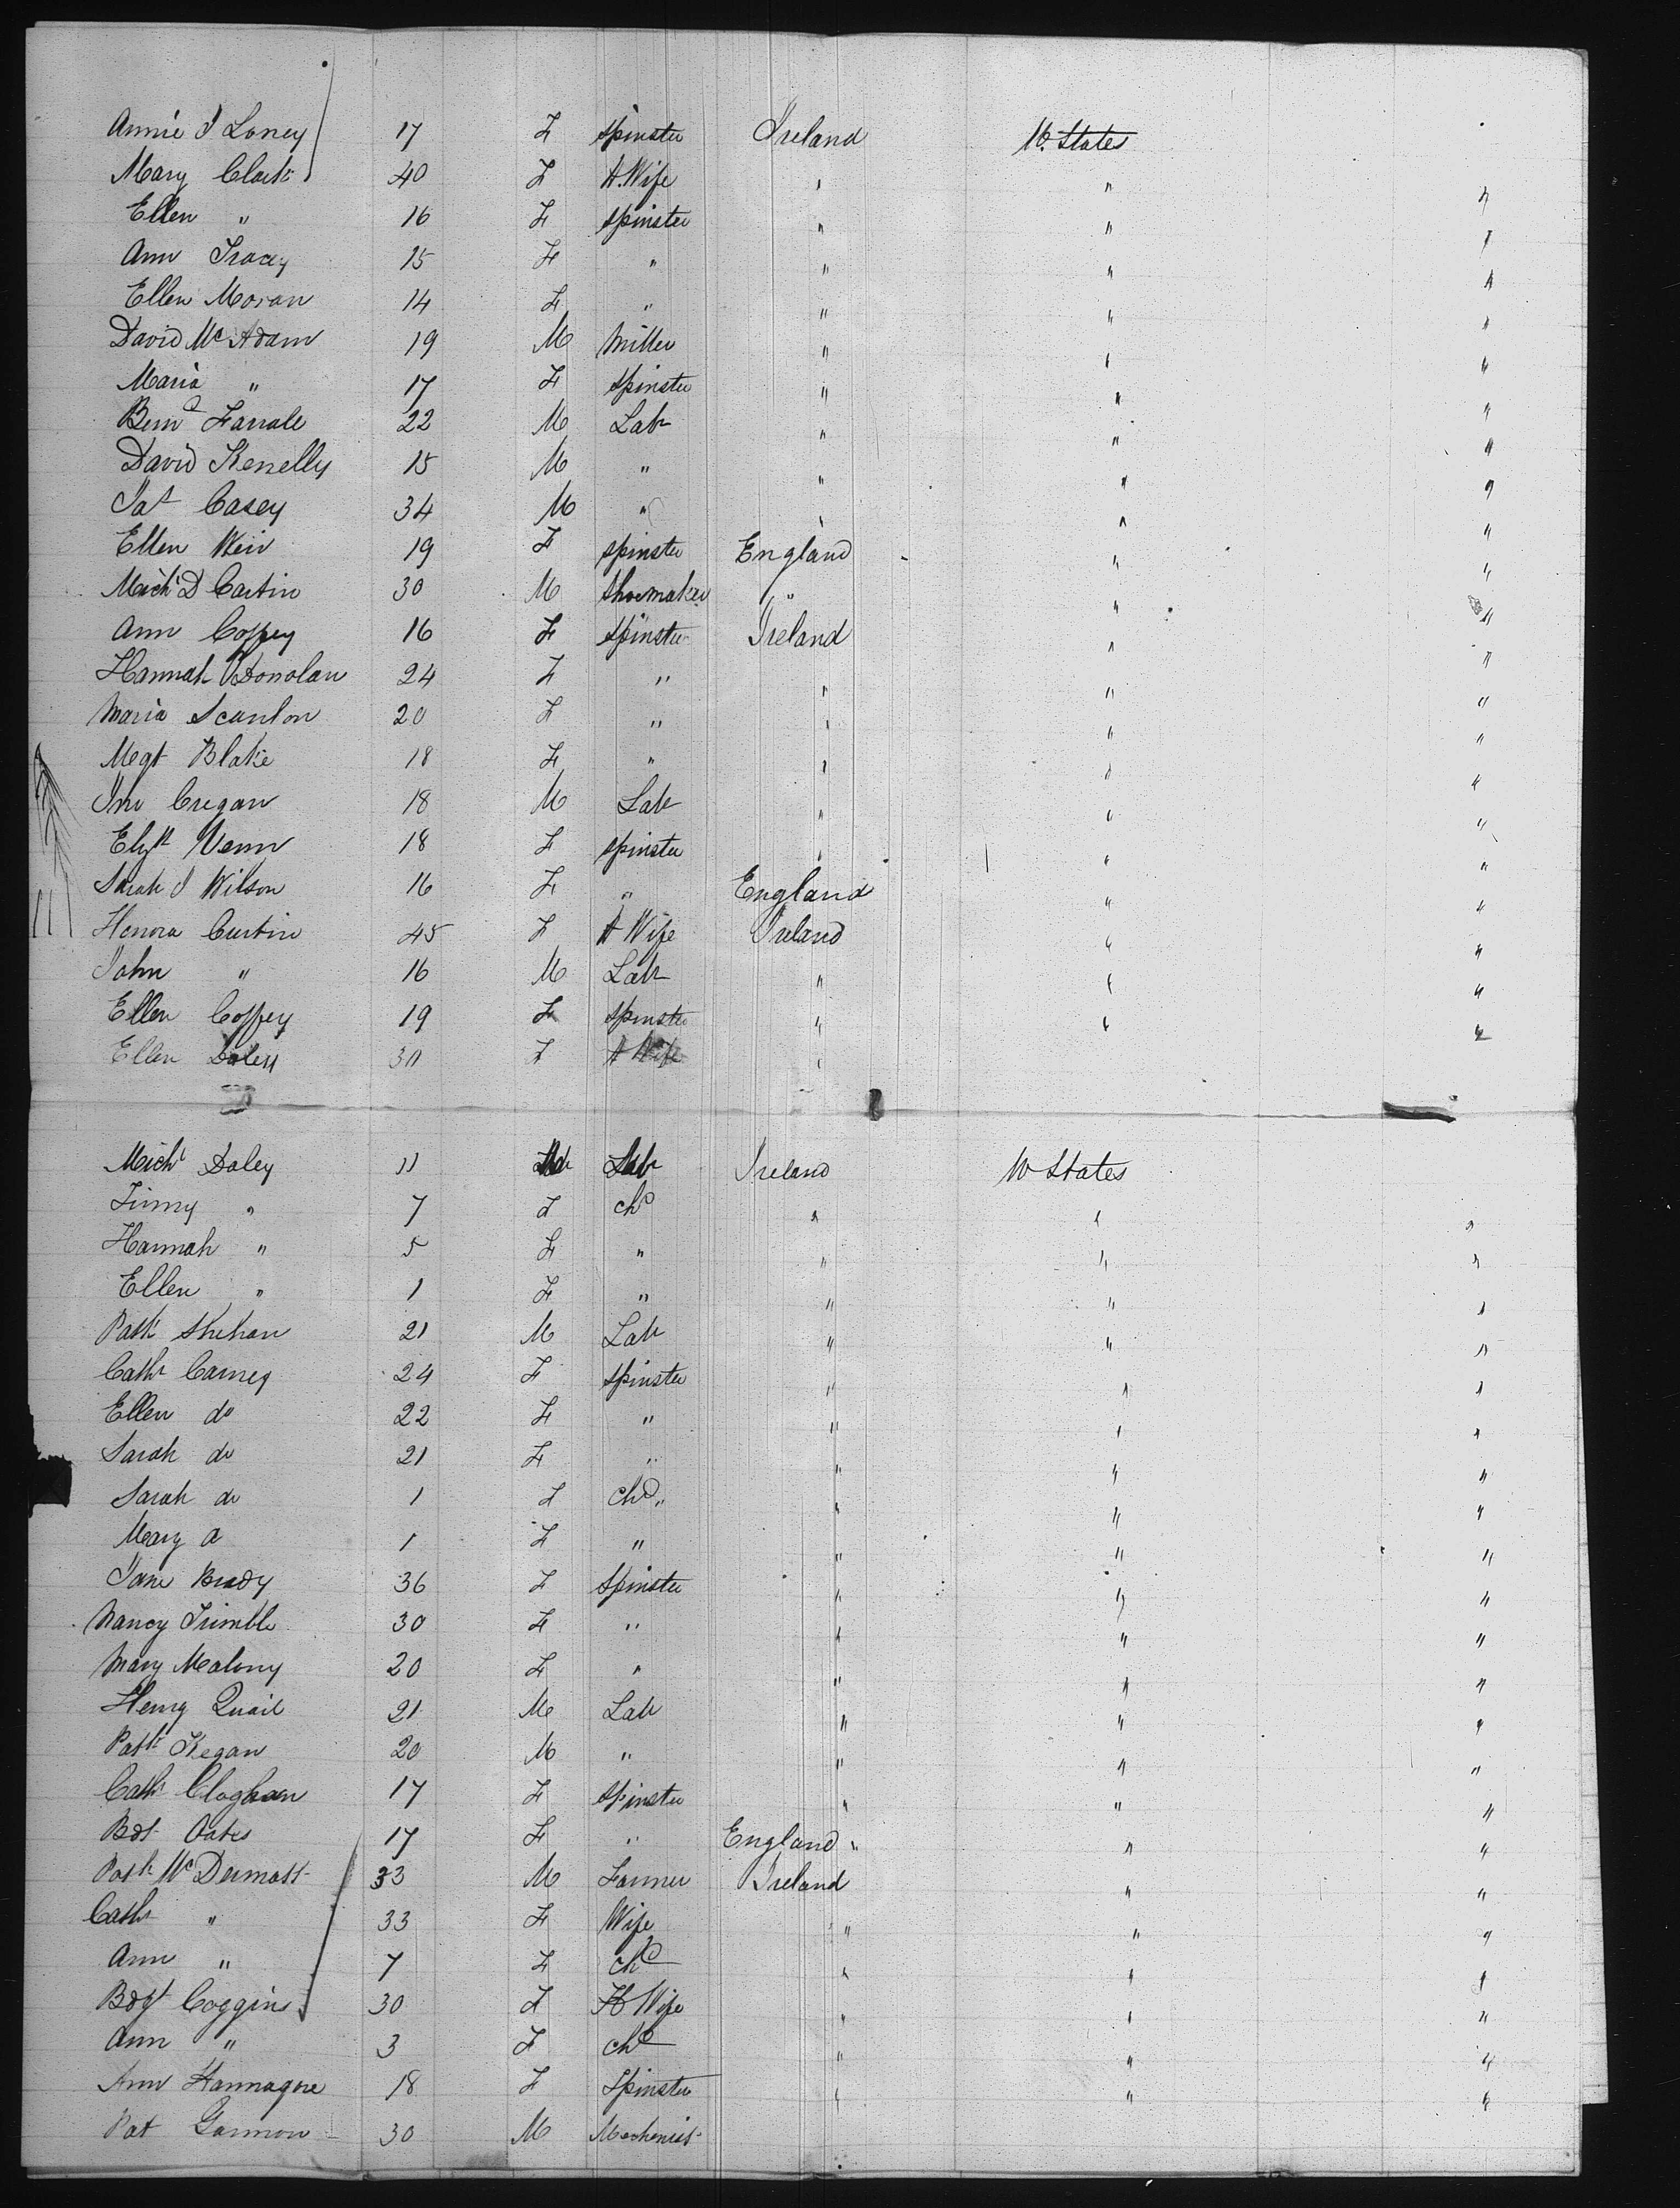 Annie J Loney 17 F Spinster Ireland U. States
Mary Clark 40 F H. Wife " " "
Ellen " 16 F Spinster " " "
Ann Tracey 15 F " " " "
Ellen Moran 14 F " " " "
David McAdam 19 M Miller " " "
Maria " 17 F Spinster " " "
Bernd Farrale 22 M Lab " " "
David Kenelly 15 M " " " "
Pat Casey 34 M " " " "
Ellen Weir 19 F Spinster England " "
Michl D Cartin 30 M Shoemaker " " "
Ann Coffey 16 F Spinster Ireland " "
Hannah ODonolan 24 F " " " "
Maria Scanlon 20 F " " " "
Megt Blake 18 F " " " "
Jno Cregan 18 M Lab " " "
Elyth Venn 18 F Spinster " " "
Sarah J Wilson 16 F " England " "
Honora Curtin 45 F H Wife Ireland " "
John " 16 M Lab " " "
Ellen Coffey 19 F Spinster " " "
Ellen Daley 30 F H Wife "
Michl Daley 11 Lab Ireland U States
Jimmy " 7 F chd " " "
Hannah " 5 F " " " "
Ellen " 1 F " " " "
Patk Shehan 21 M Lab " " "
Cathr Carney 24 F Spinster " " "
Ellen do 22 F " " " "
Sarah do 21 F " " " "
Sarah do 1 F chd " " " "
Mary A 1 F " " " "
Jane Brady 36 F Spinster " " "
Nancy Trimble 30 F " " " "
Mary Malony 20 F " " " "
Henry Quail 21 M Lab " " "
Patk Kegan 20 M " " " "
Cath Cloghan 17 F Spinster " " "
Bdt Oates 17 F " England " " "
Patk McDermott 33 M Farmer Ireland " "
Cathr " 33 F Wife " " "
Ann " 7 F chd " " "
Bdgt Coggins 30 F H Wife " " "
Ann " 3 F chd " " "
Ann Hannagne 18 F Spinster " " "
Pat Gannon 30 M Mechanist